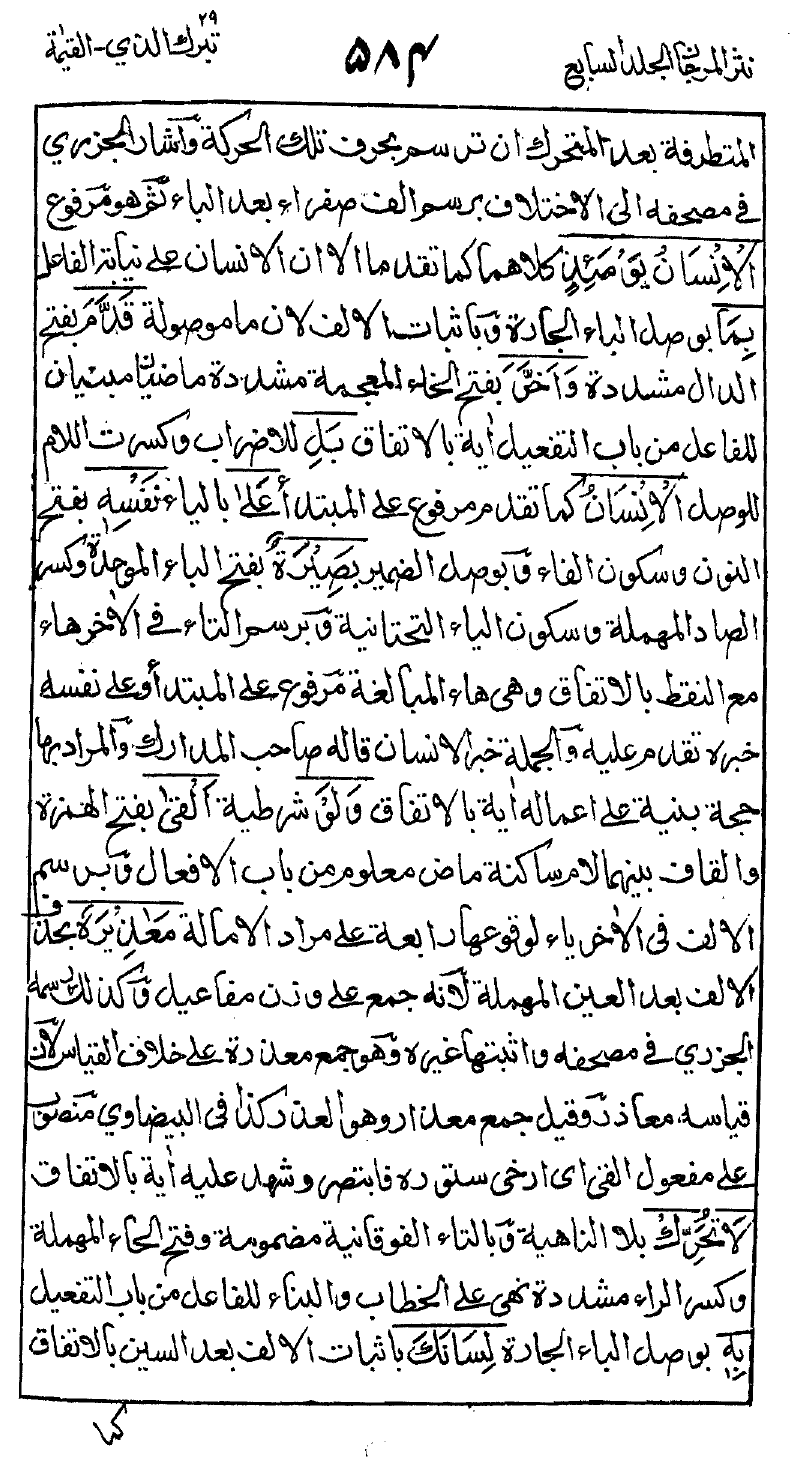 نثر المرجان الجلد السابع ۵۸۴ تبرك الذي ۲۹ - القيمة
المتطرفة بعد المتحرك ان ترسم بحرف تلك الحركة وآشار الجزري
في مصحفه الى الاختلاف برسم الف صفراء بعد الباء ثم هو مرفوع
الْاِنْسَانُ يَوْمَئِذٍ كلاهما كما تقدما الا ان الانسان على نيابة الفاعل
بِمَا بوصل الباء الجارة وبآثبات الالف لان ما موصولة قَدَّمَ بفتح
الدال مشددة وَاَخَّرَ بفتح الخاء المعجمة مشددة ماضيان مبنيان
للفاعل من باب التفعيل اٰية بالاتفاق بَلِ للاضراب وكسرت اللام
للوصل الْاِنْسَانُ كما تقدم مرفوع على المبتدأ عَلٰى بالياء نَفْسِهٖ بفتح
النون وسكون الفاء وبوصل الضمير بَصِيْرَةٌ بفتح الباء الموحدة وكسر
الصاد المهملة وسكون الياء التحتانية وبرسم التاء في الاٰخر هاء
مع النقط بالاتفاق وهي هاء المبالغة مرفوع على المبتدأ وعلى نفسه
خبره تقدم عليه والجملة خبر الانسان قاله صاحب المدارك والمراد بها
حجة بنية على اعماله اٰية بالاتفاق وَلَوْ شرطية اَلْقٰى بفتح الهمزة
والقاف بينهما لام ساكنة ماض معلوم من باب الافعال وبرسم
الالف في الاٰخر ياء لوقوعها رابعة على مراد الامالة مَعَاذِيْرَهٗ بحذف
الالف بعد العين المهملة لانه جمع على وزن مفاعيل وكذلك رسمه
الجزري في مصحفه واثبتها غيره وهو جمع معذرة على خلاف القياس لان
قياسه معاذر وقيل جمع معذار وهو العذر كذا في البيضاوي منصوب
على مفعول القى اى ارخى ستوره فابتصر وشهد عليه اٰية بالاتفاق
لَا تُحَرِّكْ بلا الناهية وبالتاء الفوقانية مضمومة وفتح الحاء المهملة
وكسر الراء مشددة نهي على الخطاب والبناء للفاعل من باب التفعيل
بِهٖ بوصل الباء الجارة لِسَانَكَ باثبات الالف بعد السين بالاتفاق
كما